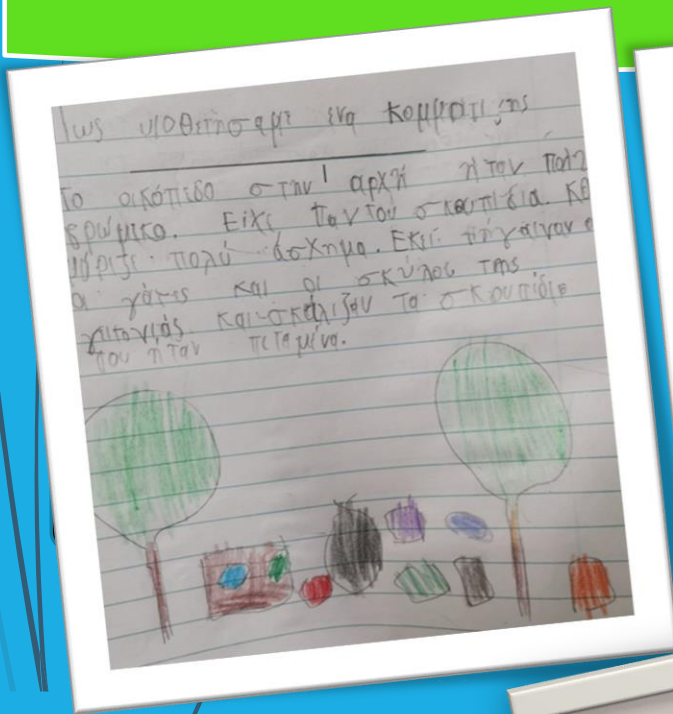 υιοθετησαμε ενα κομματι της
Το οικόπεδο στην αρχή ήταν πολύ
βρώμικο. Είχε παντού σκουπίδια. Κα
μύριζε πολύ άσχημα. Εκεί πήγαιναν
οι γάτες και οι σκύλοι της
γιτονιάς και σκάλιζαν τα σκουπίδια
που ήταν πεταμένα.